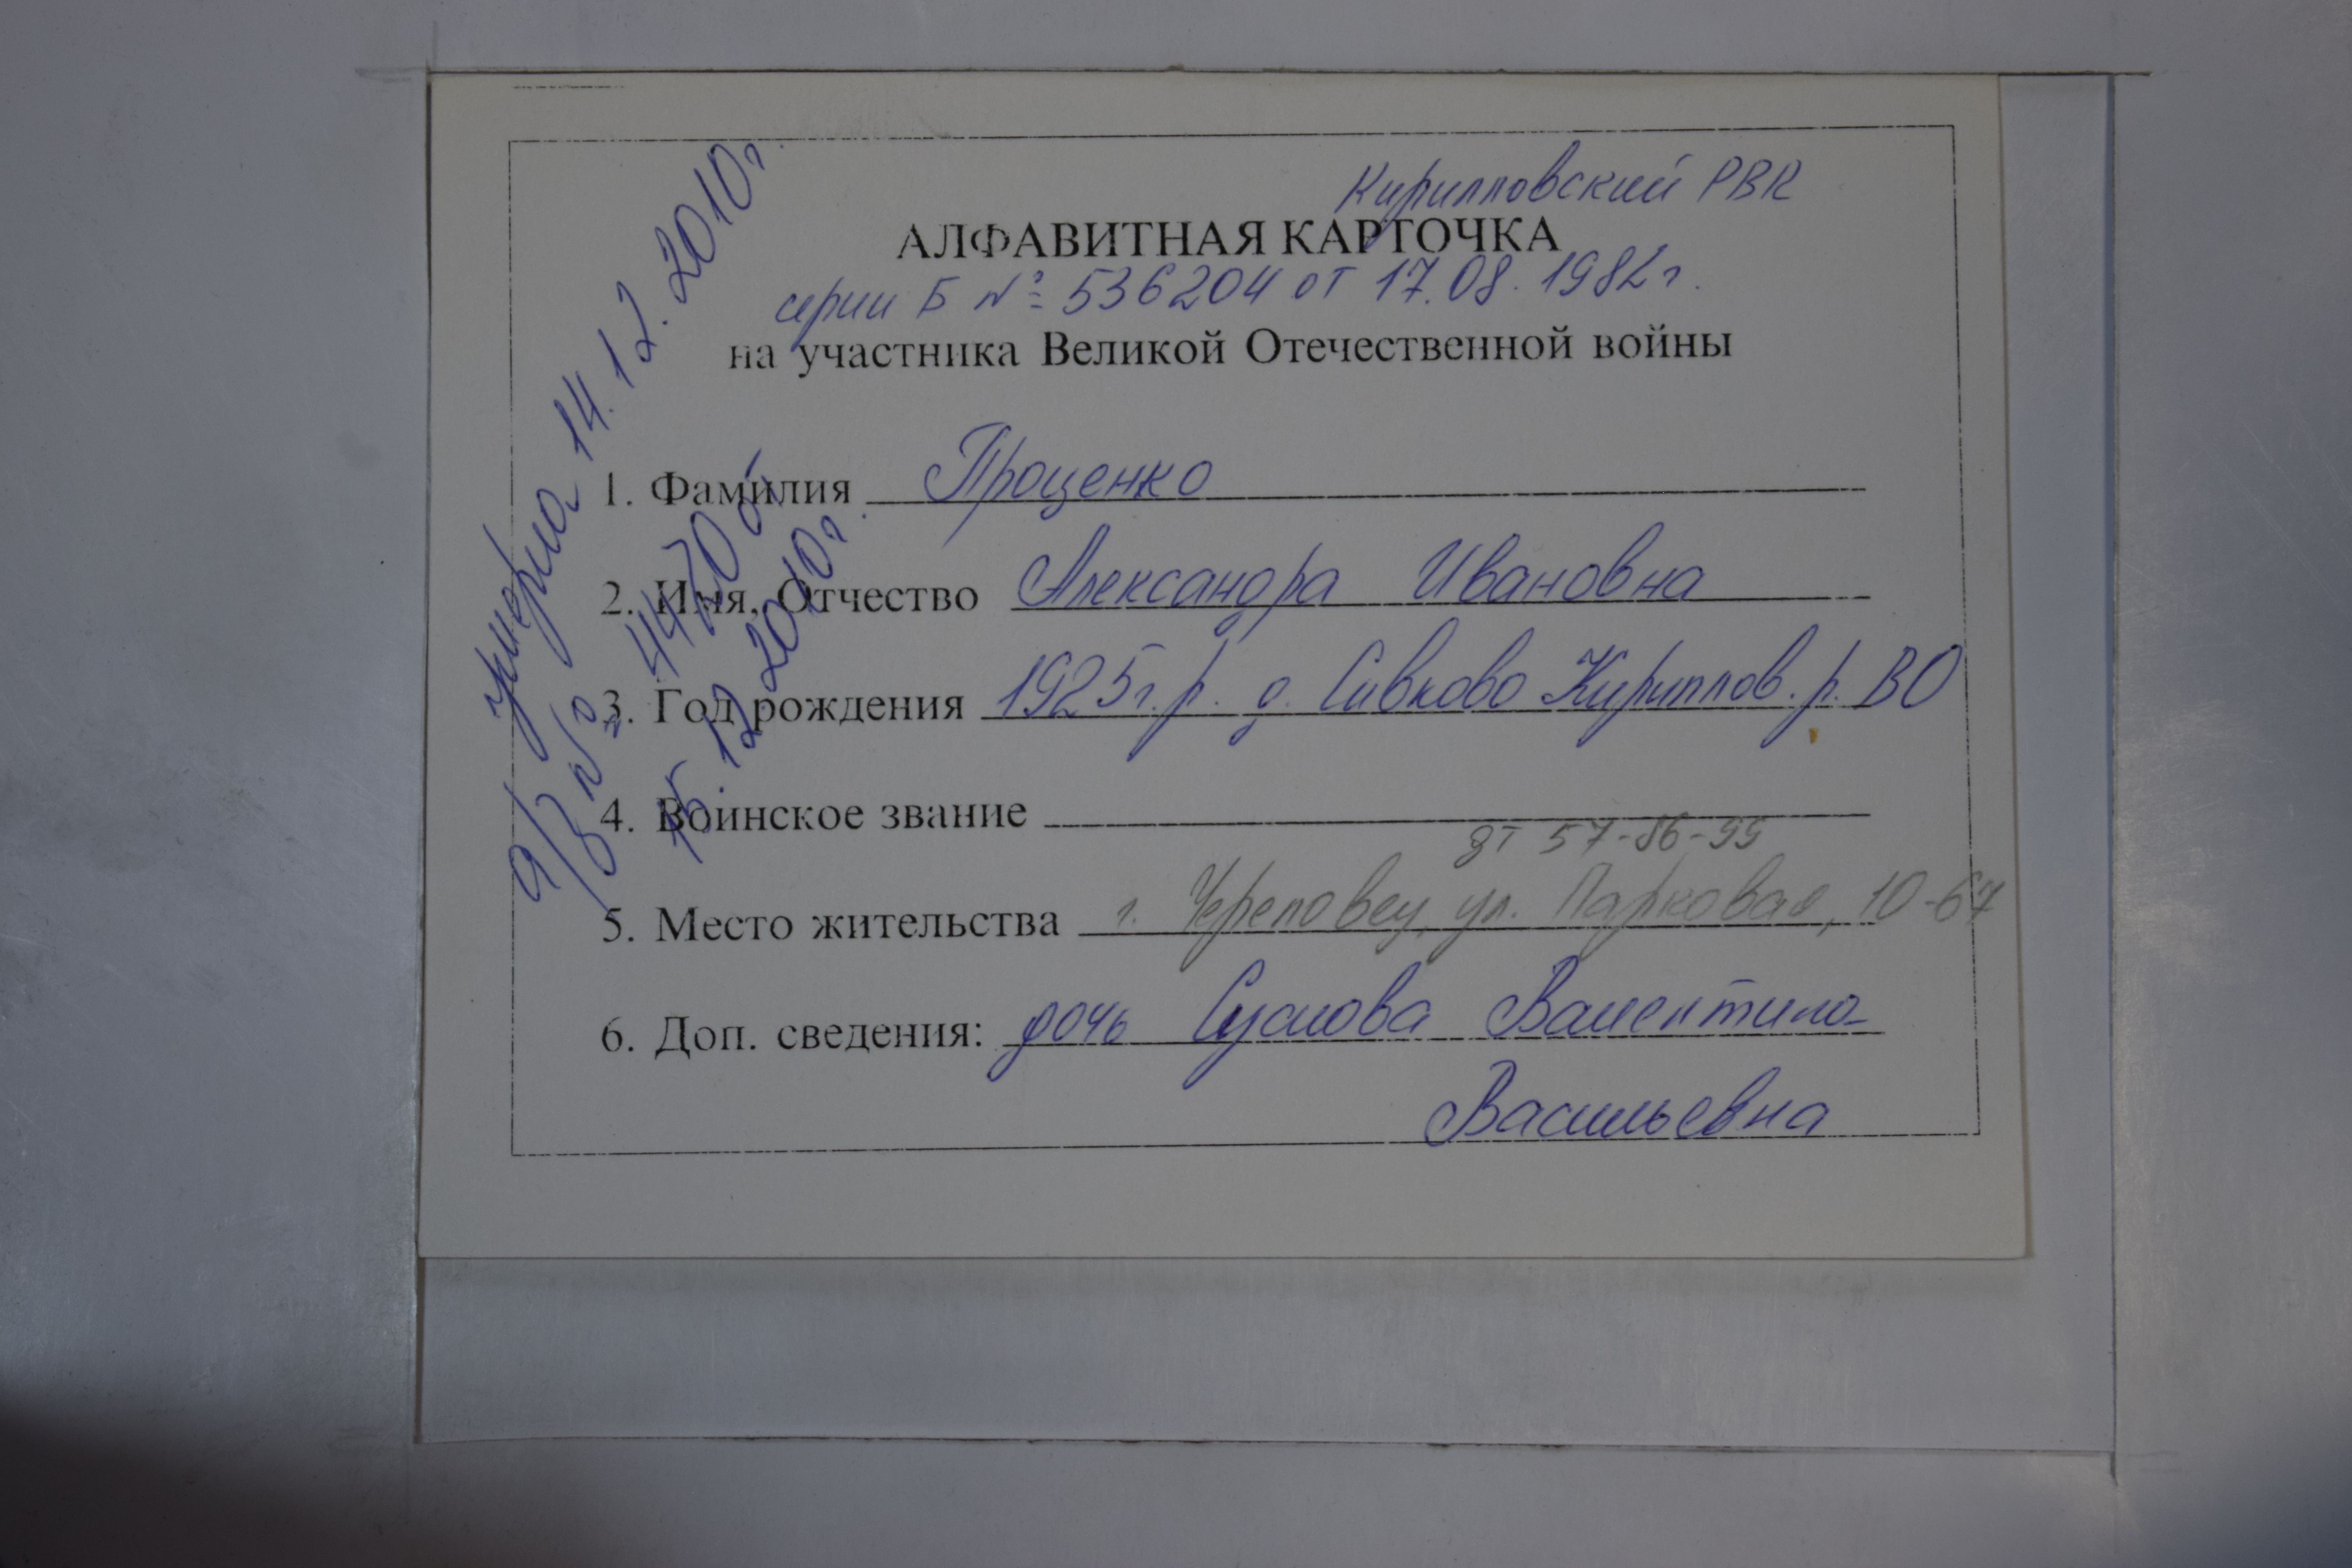 Кирилловский РВК
АЛФАВИТНАЯ КАРТОЧКА
серии Б № 536204 от 17.08.1982г.
на участника Великой Отечественной войны
1. Фамилия Проценко
2. Имя, Отчество Александра Ивановна
3. Год рождения 1925г.р. д. Сивково Кириллов. р. ВО
4. Воинское звание
дт 57-86-99
5. Место жительства г. Череповец, ул. Парковая, 10-67
6. Доп. сведения: дочь Суслова Валентина
Васильевна
умерла 14.12.2010г.
а/з № 4470 от
15.12.2010г.